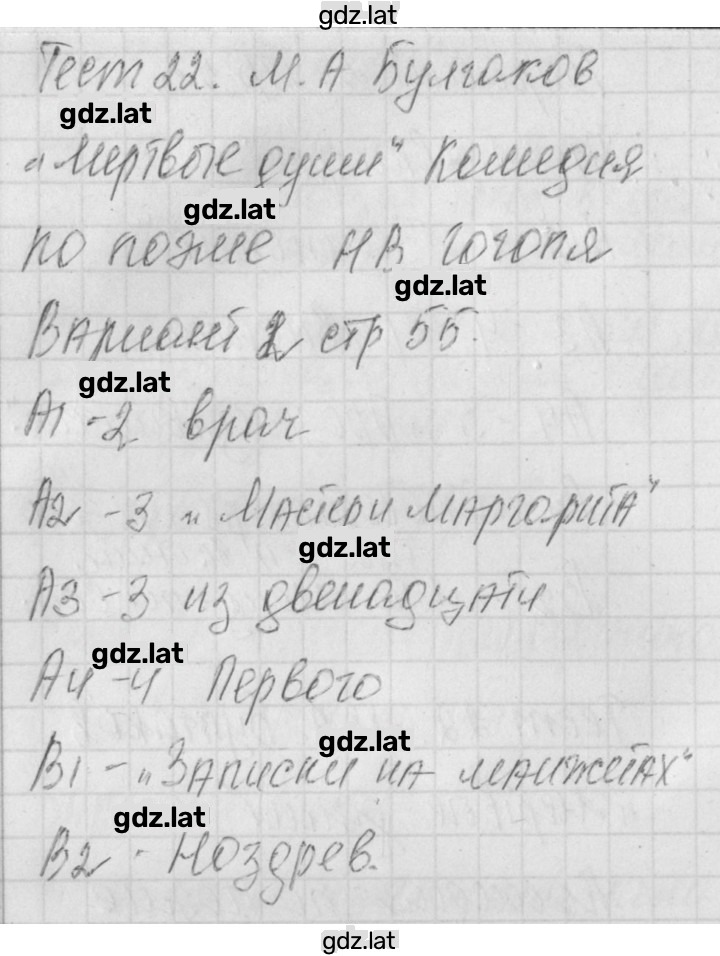 gdz.lat
Тест 22. М.А Булгаков
gdz.lat
„Мертвые души“ комедия
gdz.lat
по поэме Н В. Гоголя
gdz.lat
Вариант 2 стр 55.
gdz.lat
А1 -2 врач
А2 -3 „Мастер и Маргарита“
gdz.lat
А3 -3 из двенадцати
gdz.lat
А4 -4 Первого
gdz.lat
В1 - „Записки на манжетах“
gdz.lat
В2 - Ноздрев.
gdz.lat